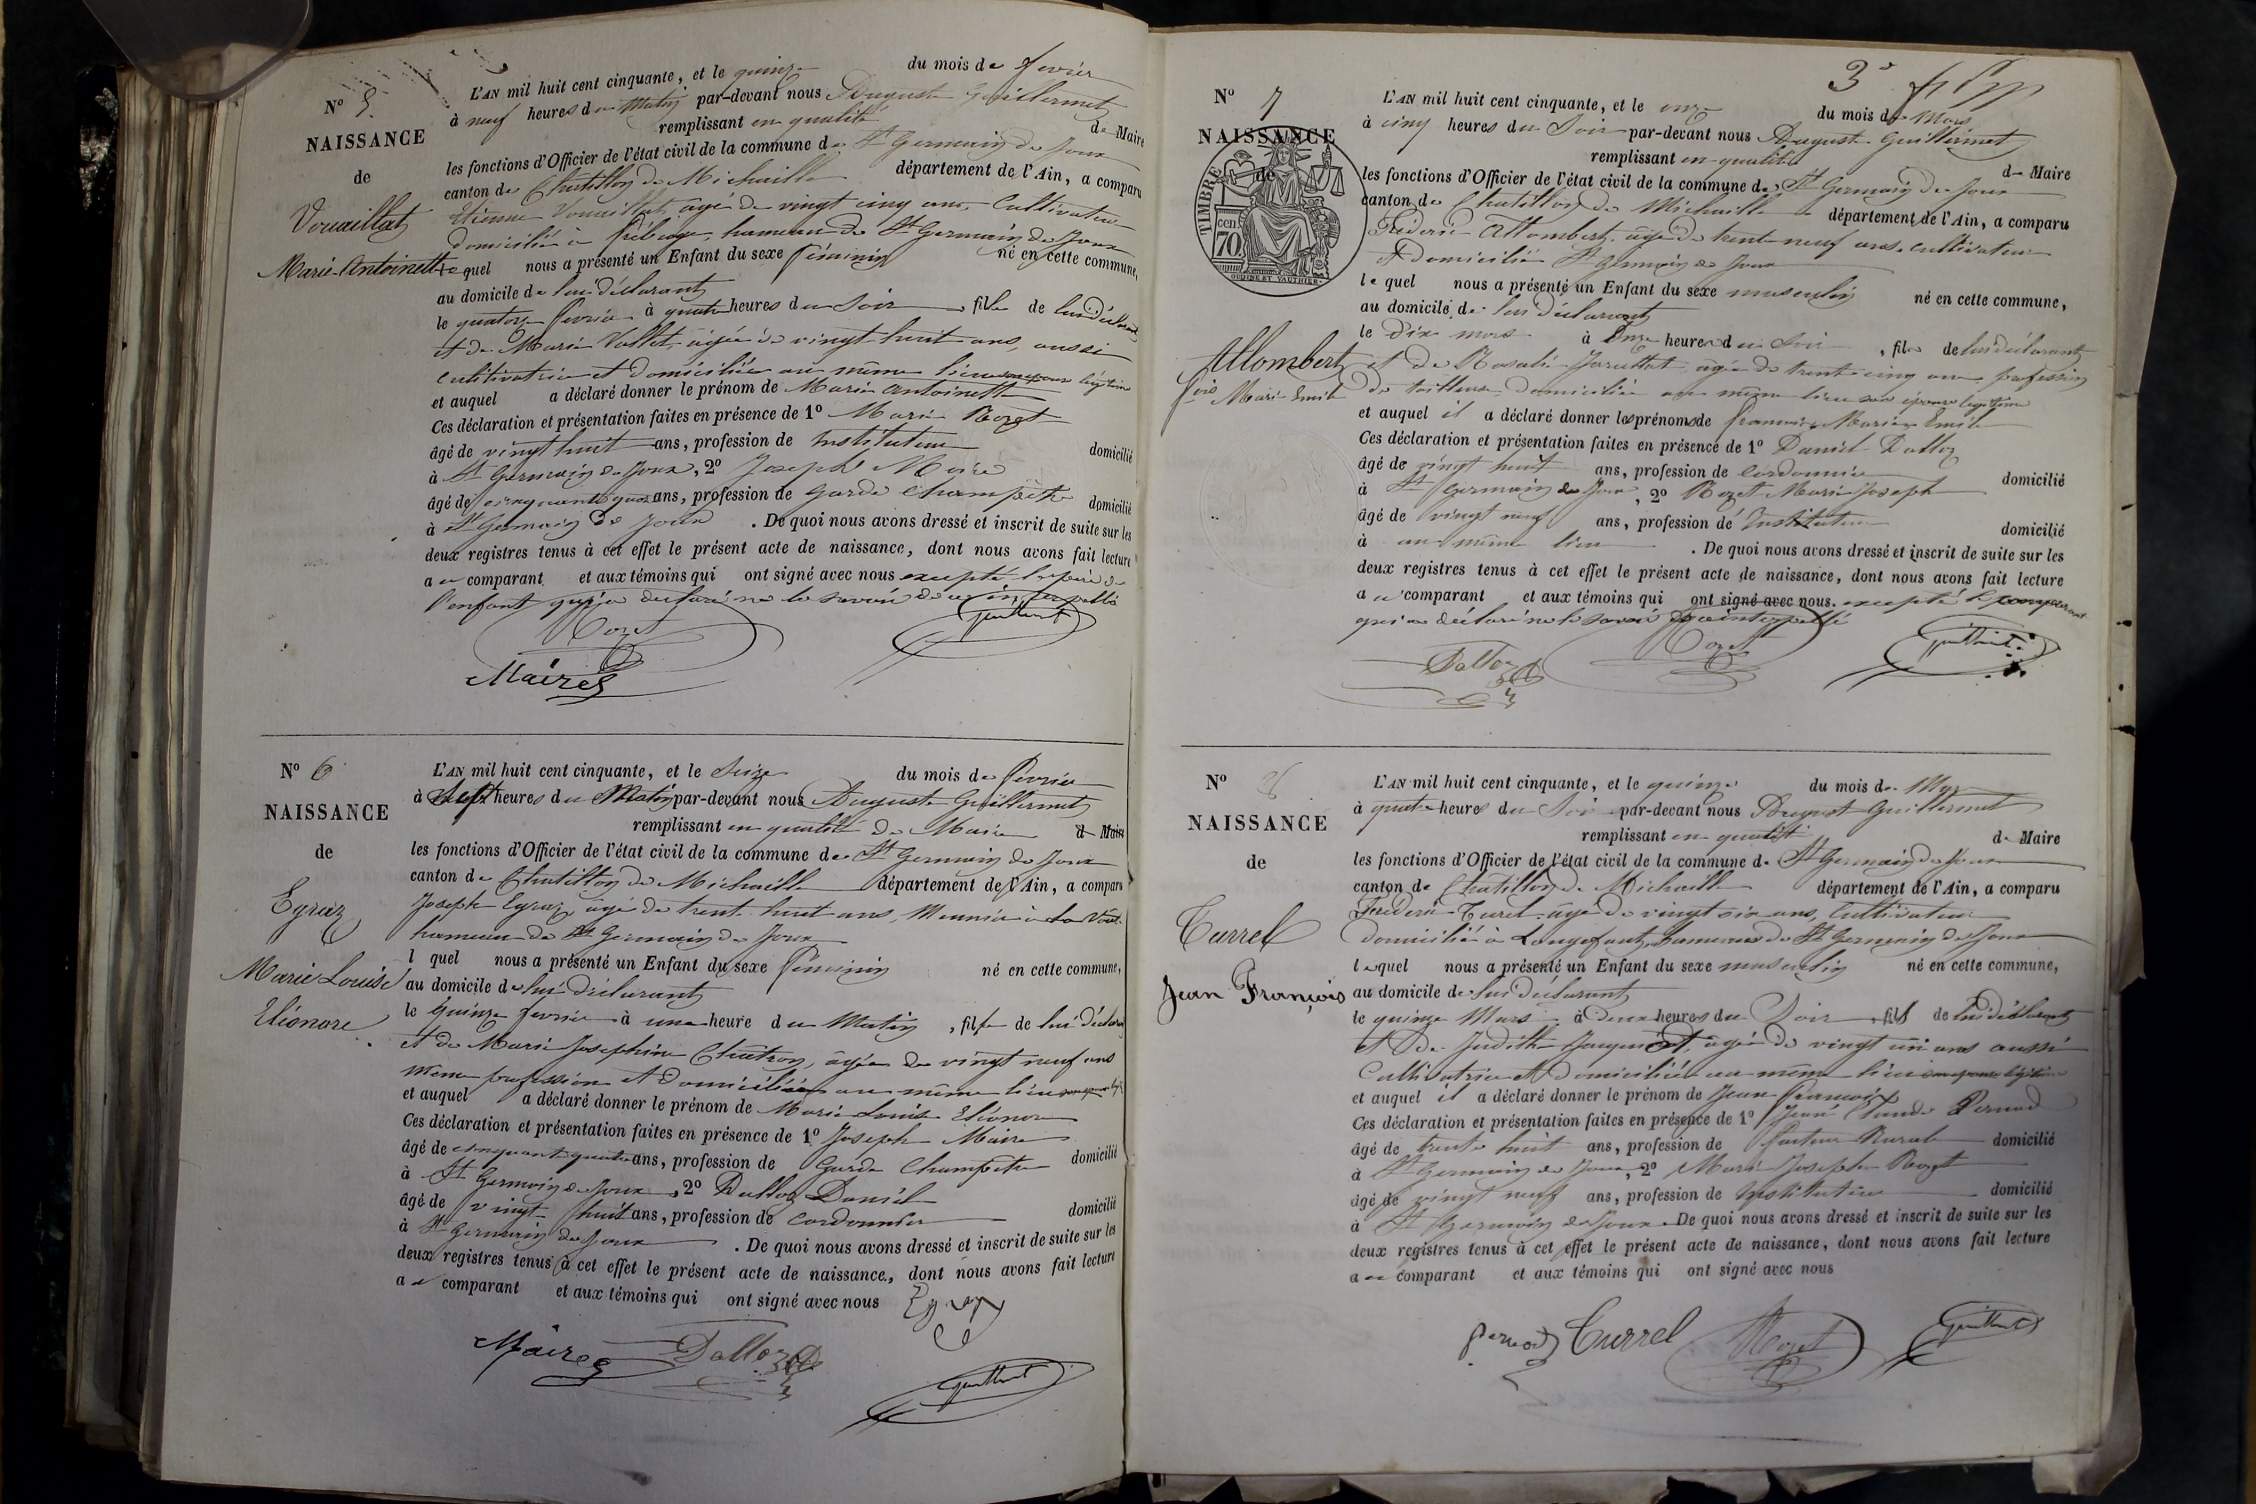 L'AN mil huit cent cinquante, et le quinze du mois de fevrier
N° 5.
à neuf heures du Matin par-devant nous Auguste Guillermet
NAISSANCE
remplissant en qualité de Maire
de
les fonctions d'Officier de l'état civil de la commune de St Germain de Joux
canton de Chatillon de Michaille département de l'Ain, a comparu
Vouaillat
Etienne Vouaillat, agé de vingt cinq ans, Cultivateur
domicilié à hameau de St Germain de Joux
Marie-Antoinette
lequel nous a présenté un Enfant du sexe féminin né en cette commune,
au domicile de lui déclarant
le quatorze fevrier à quatre heures du Soir, fille de lui déclarant
et de Marie Vallet, agée de vingt huit ans, aussi
cultivatrice et domiciliée au même lieu son épouse légitime
et auquel a déclaré donner le prénom de Marie Antoinette
Ces déclaration et présentation faites en présence de 1° Marie Rozet
âgé de vingt huit ans, profession de Instituteur domicilié
à St Germain de Joux, 2° Joseph Maire
âgé de cinquante quatre ans, profession de Garde Champêtre domicilié
à St Germain de Joux. De quoi nous avons dressé et inscrit de suite sur les
deux registres tenus à cet effet le présent acte de naissance, dont nous avons fait lecture
a ce comparant et aux témoins qui ont signé avec nous excepté le père de
l'enfant qui a declaré ne le savoir de ce interpellé
Rozet Guillermet
Maire
N° 6
L'AN mil huit cent cinquante, et le Seize du mois de Fevrier
à Sept heures du Matin par-devant nous Auguste Guillermet
NAISSANCE
remplissant en qualité de Maire de Maire
de
les fonctions d'Officier de l'état civil de la commune de St Germain de Joux
canton de Chatillon de Michaille département de l'Ain, a comparu
Egraz
Joseph Egraz, âgé de trente huit ans, Meunier à La Voute
hameau de St Germain de Joux
Marie Louise
l quel nous a présenté un Enfant du sexe féminin né en cette commune,
au domicile de lui déclarant
Eléonore
le Quinze fevrier à une heure du Matin, fille de lui déclarant
et de Marie Josephine Chatron, âgée de vingt neuf ans
même profession et domiciliée au même lieu son épouse
et auquel a déclaré donner le prénom de Marie Louise Eléonore
Ces déclaration et présentation faites en présence de 1° Joseph Maire
âgé de cinquante quatre ans, profession de Garde Champetre domicilié
à St Germain de Joux, 2° Dalloz Daniel
âgé de vingt huit ans, profession de cordonnier domicilié
à St Germain de Joux. De quoi nous avons dressé et inscrit de suite sur les
deux registres tenus à cet effet le présent acte de naissance, dont nous avons fait lecture
a ce comparant et aux témoins qui ont signé avec nous Egraz
Maire Dalloz
Guillermet
3e
N° 7
L'AN mil huit cent cinquante, et le onze du mois de Mars
NAISSANCE
à cinq heures du Soir par-devant nous Auguste Guillermet
remplissant en qualité de Maire
de
TIMBRE
cen
70.
OUDINE ET VAUTHIER.
les fonctions d'Officier de l'état civil de la commune de St Germain de Joux
canton de Chatillon de Michaille département de l'Ain, a comparu
Frédéric Allombert, âgé de trente neuf ans, cultivateur
et domicilié St Germain de Joux
le quel nous a présenté un Enfant du sexe masculin né en cette commune,
au domicile de lui déclarant
le Dix mars à Onze heures du Soir, fils de lui déclarant
Allombert
et de Rosalie Juruttet, âgée de trente cinq ans, profession
fois Marie Emile
de tailleuse domiciliée au même lieu son épouse légitime
et auquel il a déclaré donner les prénoms de françois Marie Emile
Ces déclaration et présentation faites en présence de 1° Daniel Dalloz
âgé de vingt huit ans, profession de cordonnier domicilié
à St Germain de Joux, 2° Rozet Marie Joseph
âgé de vingt neuf ans, profession de Instituteur domicilié
à au même lieu. De quoi nous avons dressé et inscrit de suite sur les
deux registres tenus à cet effet le présent acte de naissance, dont nous avons fait lecture
a ce comparant et aux témoins qui ont signé avec nous. excepté le comparant
qui a déclaré ne le savoir de ce interpellé
Dalloz Rozet Guillermet
N° 8
L'AN mil huit cent cinquante, et le quinze du mois de Mars
à quatre heures du Soir par-devant nous August Guillermet
NAISSANCE
remplissant en qualité de Maire
de
les fonctions d'Officier de l'état civil de la commune de St Germain de Joux
canton de Chatillon de Michaille département de l'Ain, a comparu
Turrel
Frédéric Turel, âgé de vingt six ans, Cultivateur
domicilié à Longefont, hameau de St Germain de Joux
lequel nous a présenté un Enfant du sexe masculin né en cette commune,
Jean François
au domicile de lui déclarant
le quinze Mars à deux heures du Soir, fils de lui déclarant
et de Judith Jacquenet, agée de vingt un ans aussi
Cultivatrice et domiciliée au même lieu son épouse légitime
et auquel il a déclaré donner le prénom de Jean François
Ces déclaration et présentation faites en présence de 1° Jean Claude Pernod
âgé de trente huit ans, profession de facteur Rural domicilié
à St Germain de Joux, 2° Marie Joseph Rozet
âgé de vingt neuf ans, profession de Instituteur domicilié
à St Germain de Joux. De quoi nous avons dressé et inscrit de suite sur les
deux registres tenus à cet effet le présent acte de naissance, dont nous avons fait lecture
a ce comparant et aux témoins qui ont signé avec nous
Pernod Turrel Rozet Guillermet